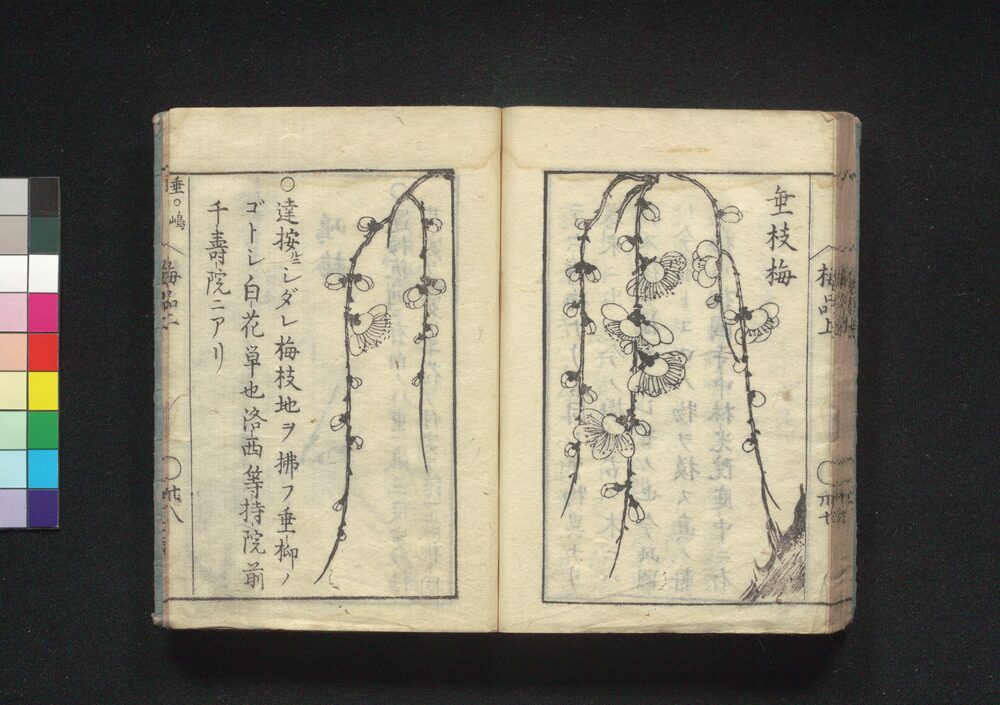 垂枝梅
梅品上
○達按ニシダレ梅枝地ヲ拂フ垂柳ノ
ゴトシノ白花単也洛西等持院前
千壽院ニアリ
垂○嶋